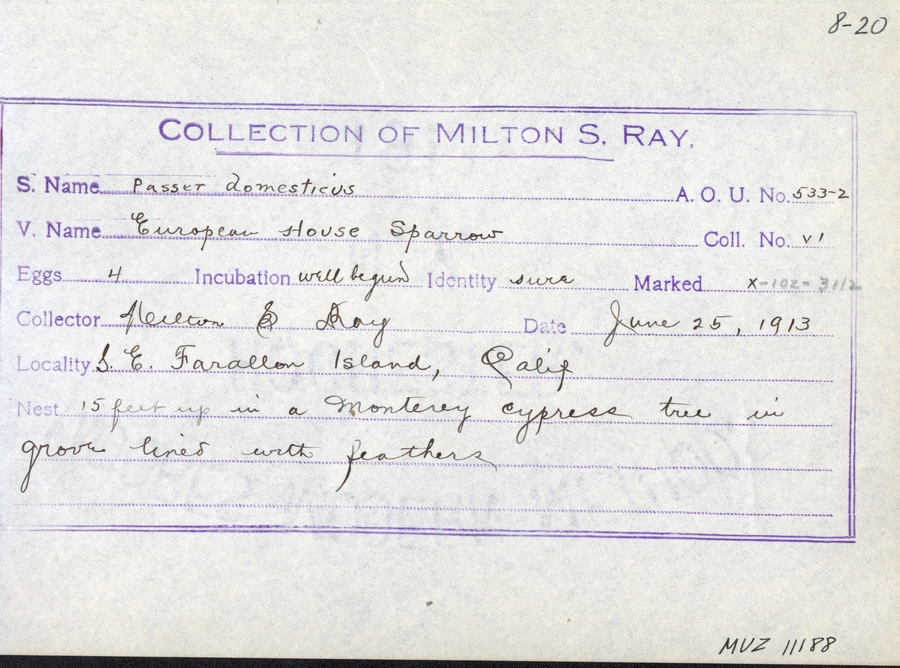 8-20
COLLECTION OF MILTON S. RAY.
S. Name Passer domesticus A. O. U. No. 533-2
V. Name European House Sparrow Coll. No. VI
Eggs 4 Incubation well begun Identity sure Marked X-102-3112
Collector Milton S Ray Date June 25, 1913
Locality S. E. Farallon Island, Calif
Nest 15 feet up in a Monterey cypress tree in
grove lined with feathers
MVZ 11188